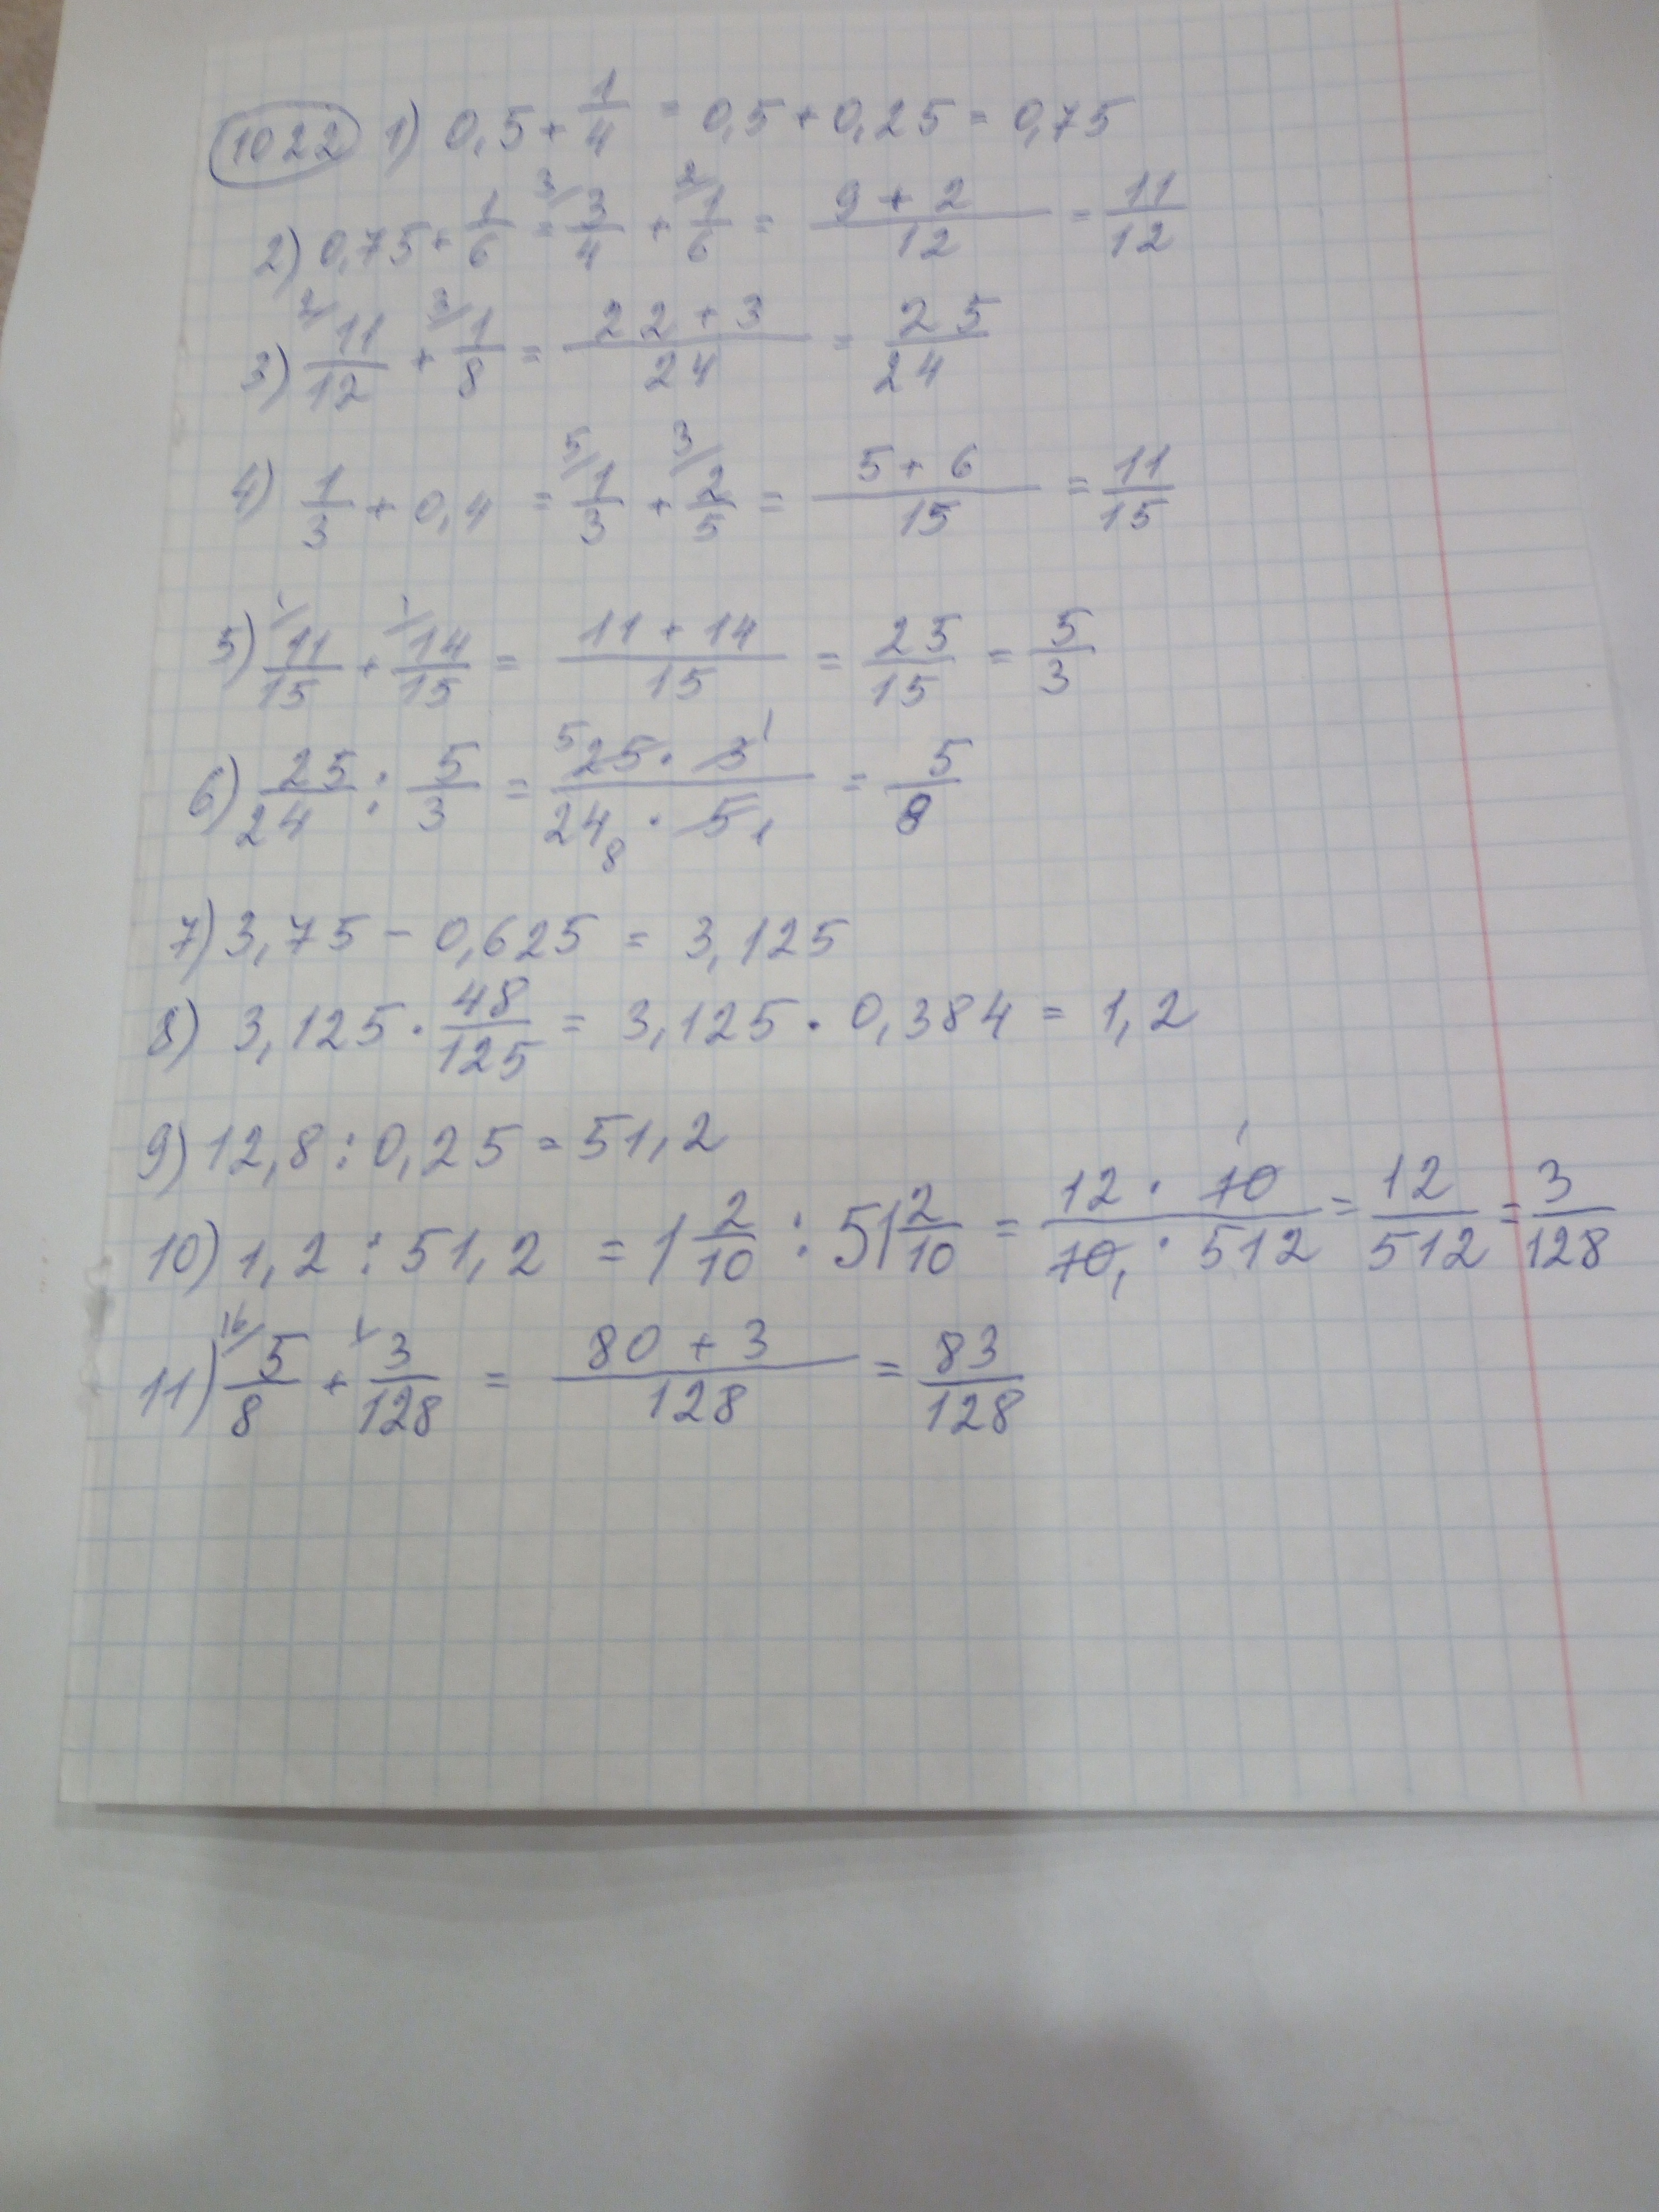 1022 1) 0,5 + 1/4 = 0,5 + 0,25 = 0,75
2) 0,75 + 1/6 = 3/ 3/4 + 2/ 1/6 = (9 + 2)/12 = 11/12
3) 2/ 11/12 + 3/ 1/8 = (22 + 3)/24 = 25/24
4) 1/3 + 0,4 = 5/ 1/3 + 3/ 2/5 = (5 + 6)/15 = 11/15
5) 1/ 11/15 + 1/ 14/15 = (11 + 14)/15 = 25/15 = 5/3
6) 25/24 : 5/3 = (5 25 · 3 1)/(24 8 · 5 1) = 5/8
7) 3,75 - 0,625 = 3,125
8) 3,125 · 48/125 = 3,125 · 0,384 = 1,2
9) 12,8 : 0,25 = 51,2
10) 1,2 : 51,2 = 1 2/10 : 51 2/10 = (12 · 10 1)/(10 1 · 512) = 12/512 = 3/128
11) 16/ 5/8 + 1/ 3/128 = (80 + 3)/128 = 83/128